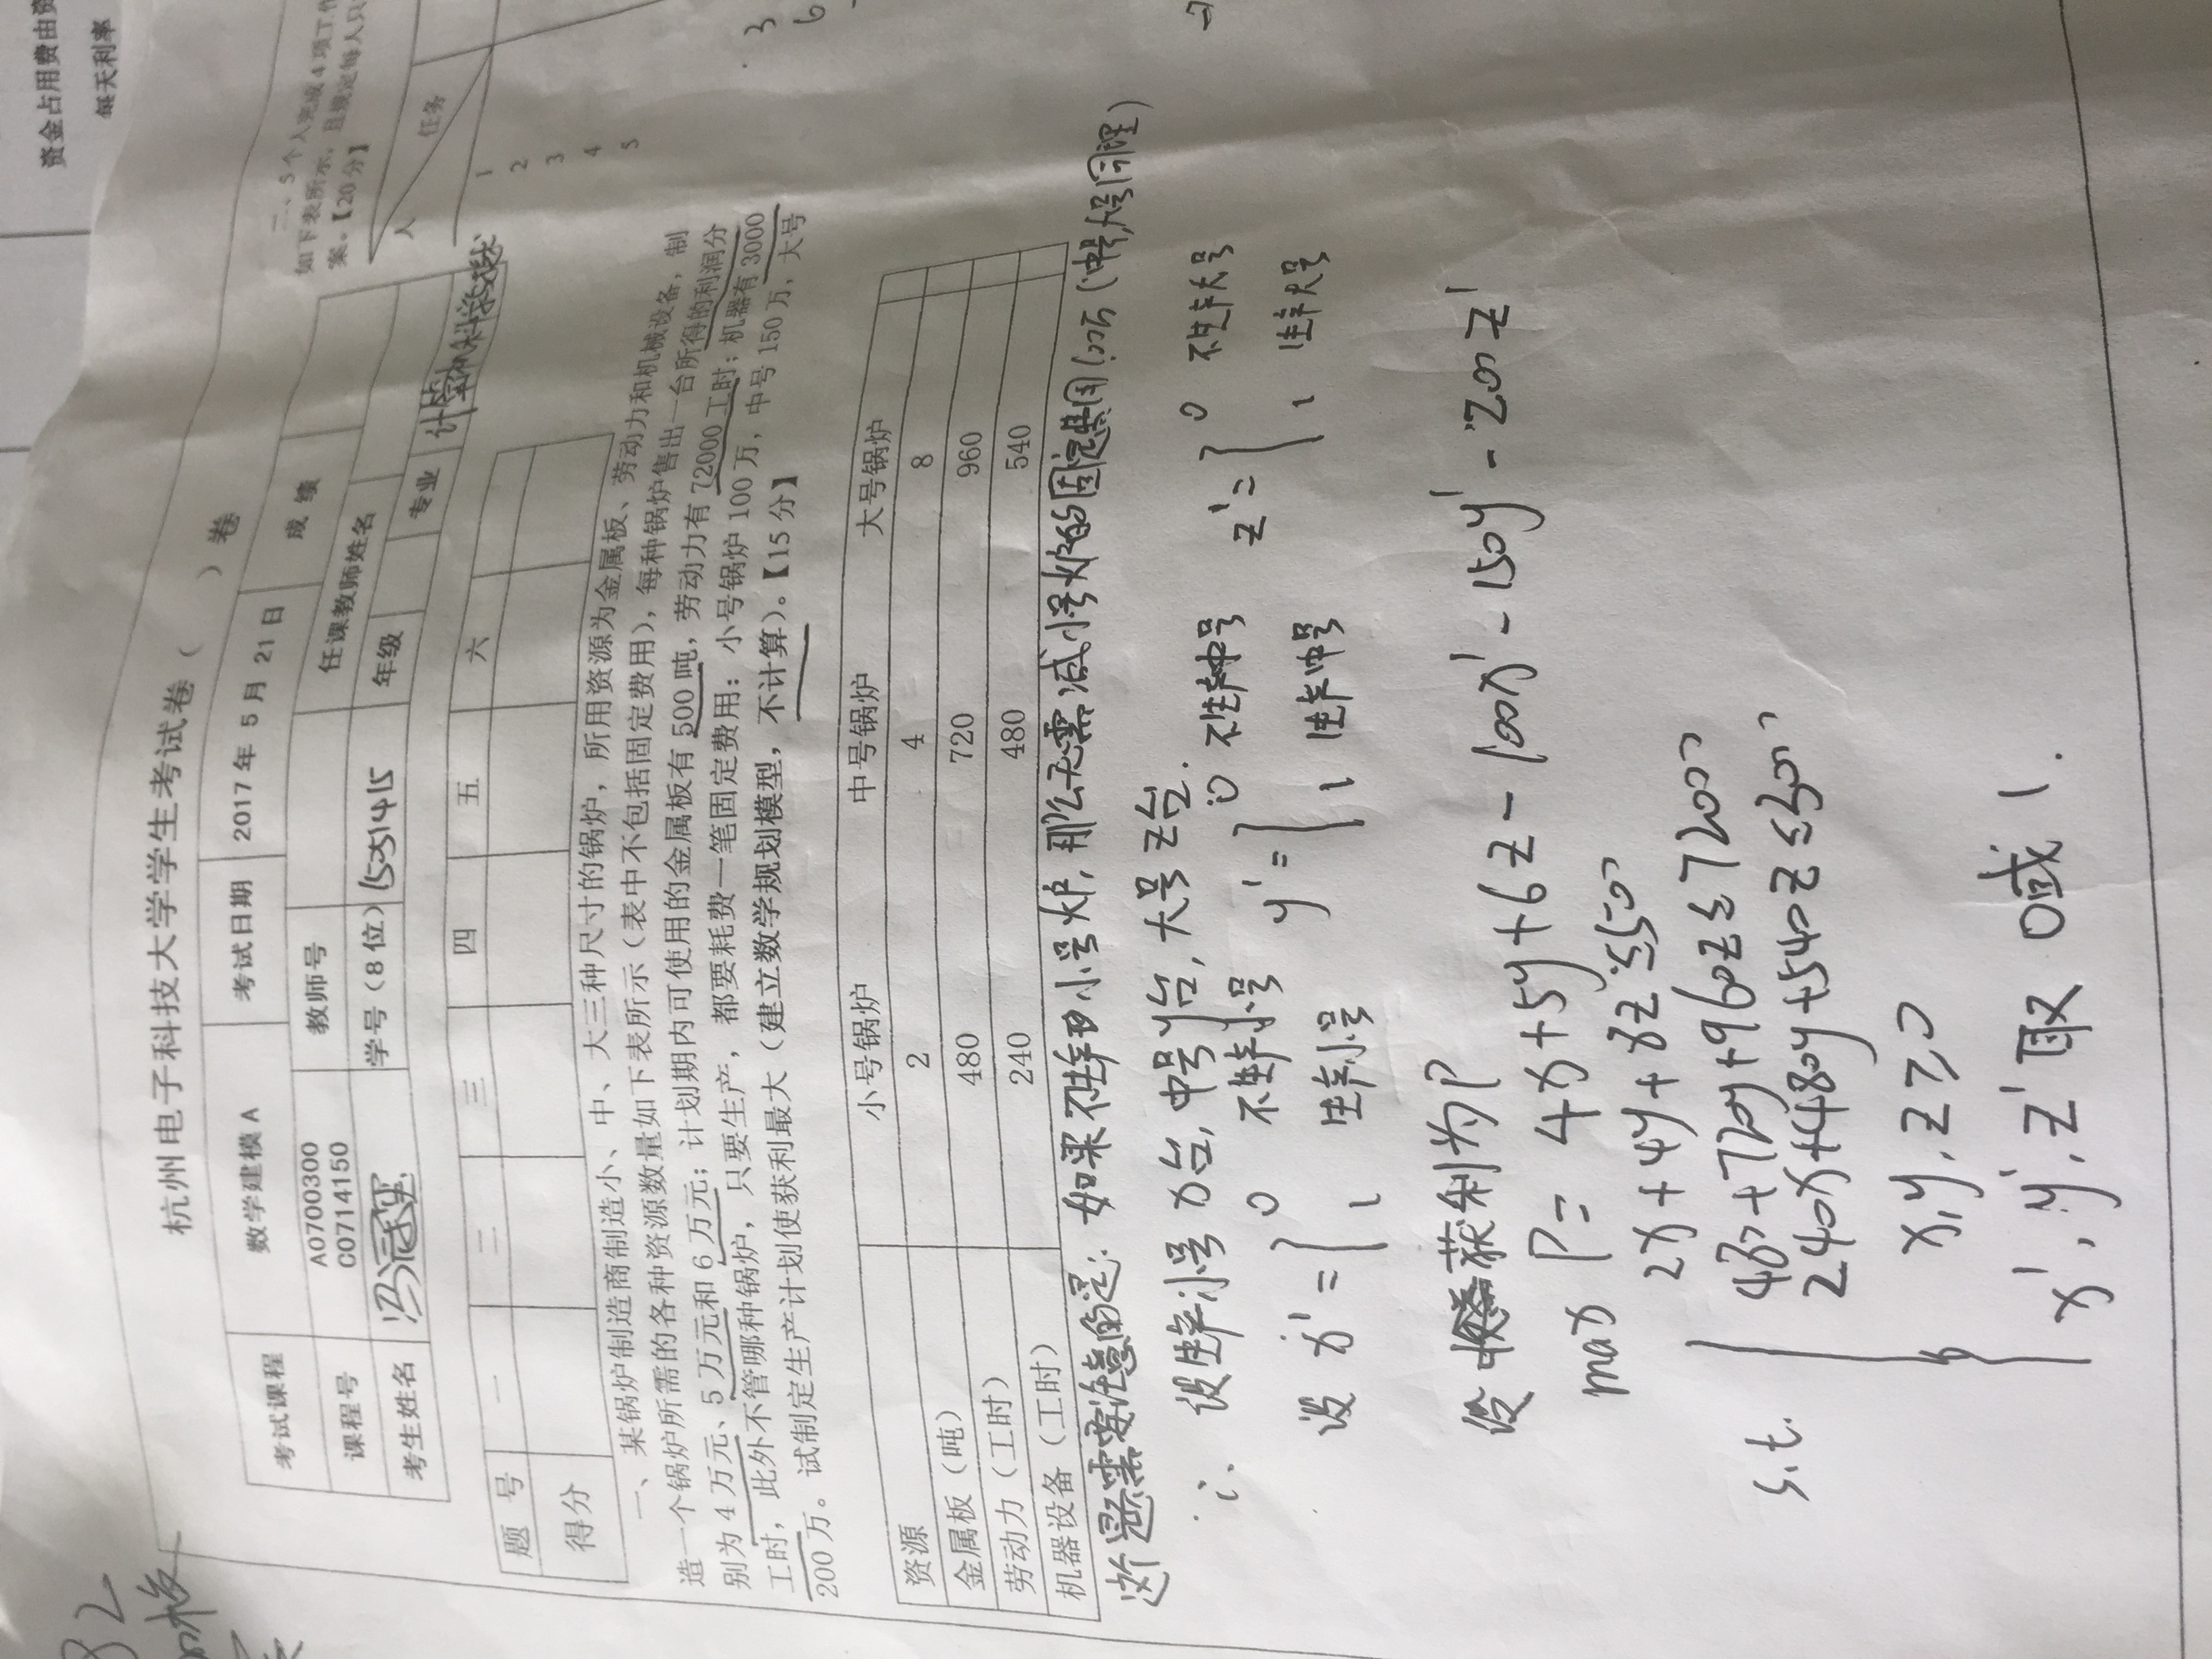 资金占用费由资
每天利率
杭州电子科技大学学生考试卷（ ）卷
考试课程 数学建模A 考试日期 2017年 5月 21日 成绩
课程号 A0700300 C0714150 教师号 任课教师姓名
考生姓名 学号（8位） 15051415 年级 专业 计算机科学与技术
题 号 一 二 三 四 五 六
得分
一、某锅炉制造商制造小、中、大三种尺寸的锅炉，所用资源为金属板、劳动力和机械设备，制
造一个锅炉所需的各种资源数量如下表所示（表中不包括固定费用），每种锅炉售出一台所得的利润分
别为4万元、5万元和6万元；计划期内可使用的金属板有500吨，劳动力有72000工时；机器有3000
工时，此外不管哪种锅炉，只要生产，都要耗费一笔固定费用：小号锅炉100万，中号150万，大号
200万。试制定生产计划使获利最大（建立数学规划模型，不计算）。【15分】
小号锅炉 中号锅炉 大号锅炉
资源 2 4 8
金属板（吨） 480 720 960
劳动力（工时） 240 480 540
机器设备（工时）
这个题需要注意的是：如果不生产小号炉，那么无需减小号炉的固定费用100万（中号，大号同理）
设生产小号x台，中号y台，大号z台.
设 x'={ 0 不生产小号 y'={ 0 不生产中号 z'={ 0 不生产大号
1 生产小号 1 生产中号 1 生产大号
设 获利为P
max P= 4x+5y+6z-100x'-150y'-200z'
2x+4y+8z≤500
s.t. 480+720y+960z≤72000
240x+480y+540z≤3000
x,y,z≥0
x',y',z'取 0或1.
二、5个人完成4项工作
如下表所示，且规定每人只
案。【20分】
人 任务
1
2
3
4
5
3
6